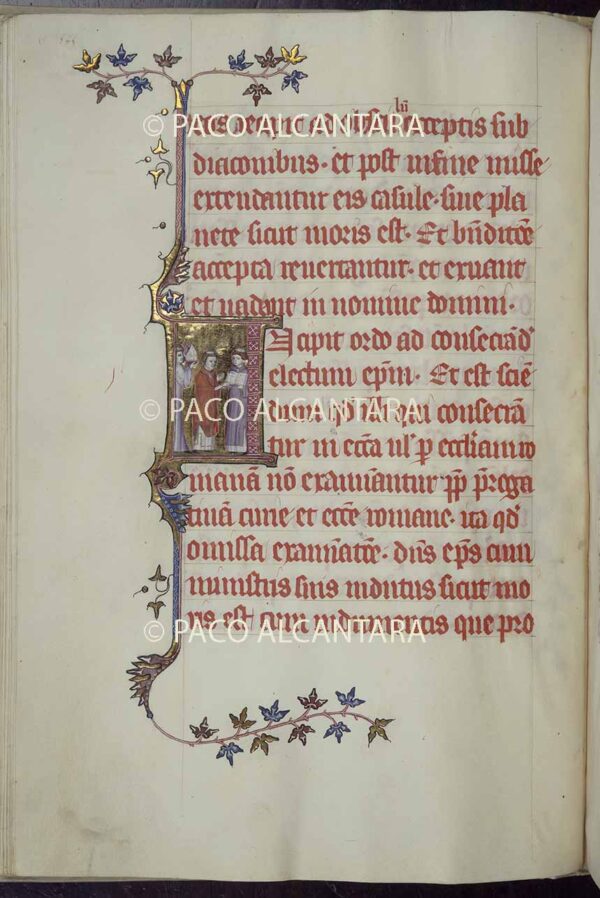 © PACO ALCANTARA
acceptis sub
diaconibus. et post in fine misse
extendantur eis casule. siue pla
nete sicut moris est. Et bn̄dictōe
accepta reuertantur. et exuant
et uadant in nomine domini.
Incipit ordo ad consecrād̄
electum ep̄m. Et est sciē
© PACO ALCANTARA
dum qui consecrā
tur in ecc̄a ul̓ p̱ ecclīam ro
manā nō examinantur p̄p p̄roga
tiuā curie et ecc̄e romane. ita qd̄
omissa examinatōe. dn̄s ep̄s cum
ministris suis indutus sicut mo
© PACO ALCANTARA
ris est cum indumentis que pro